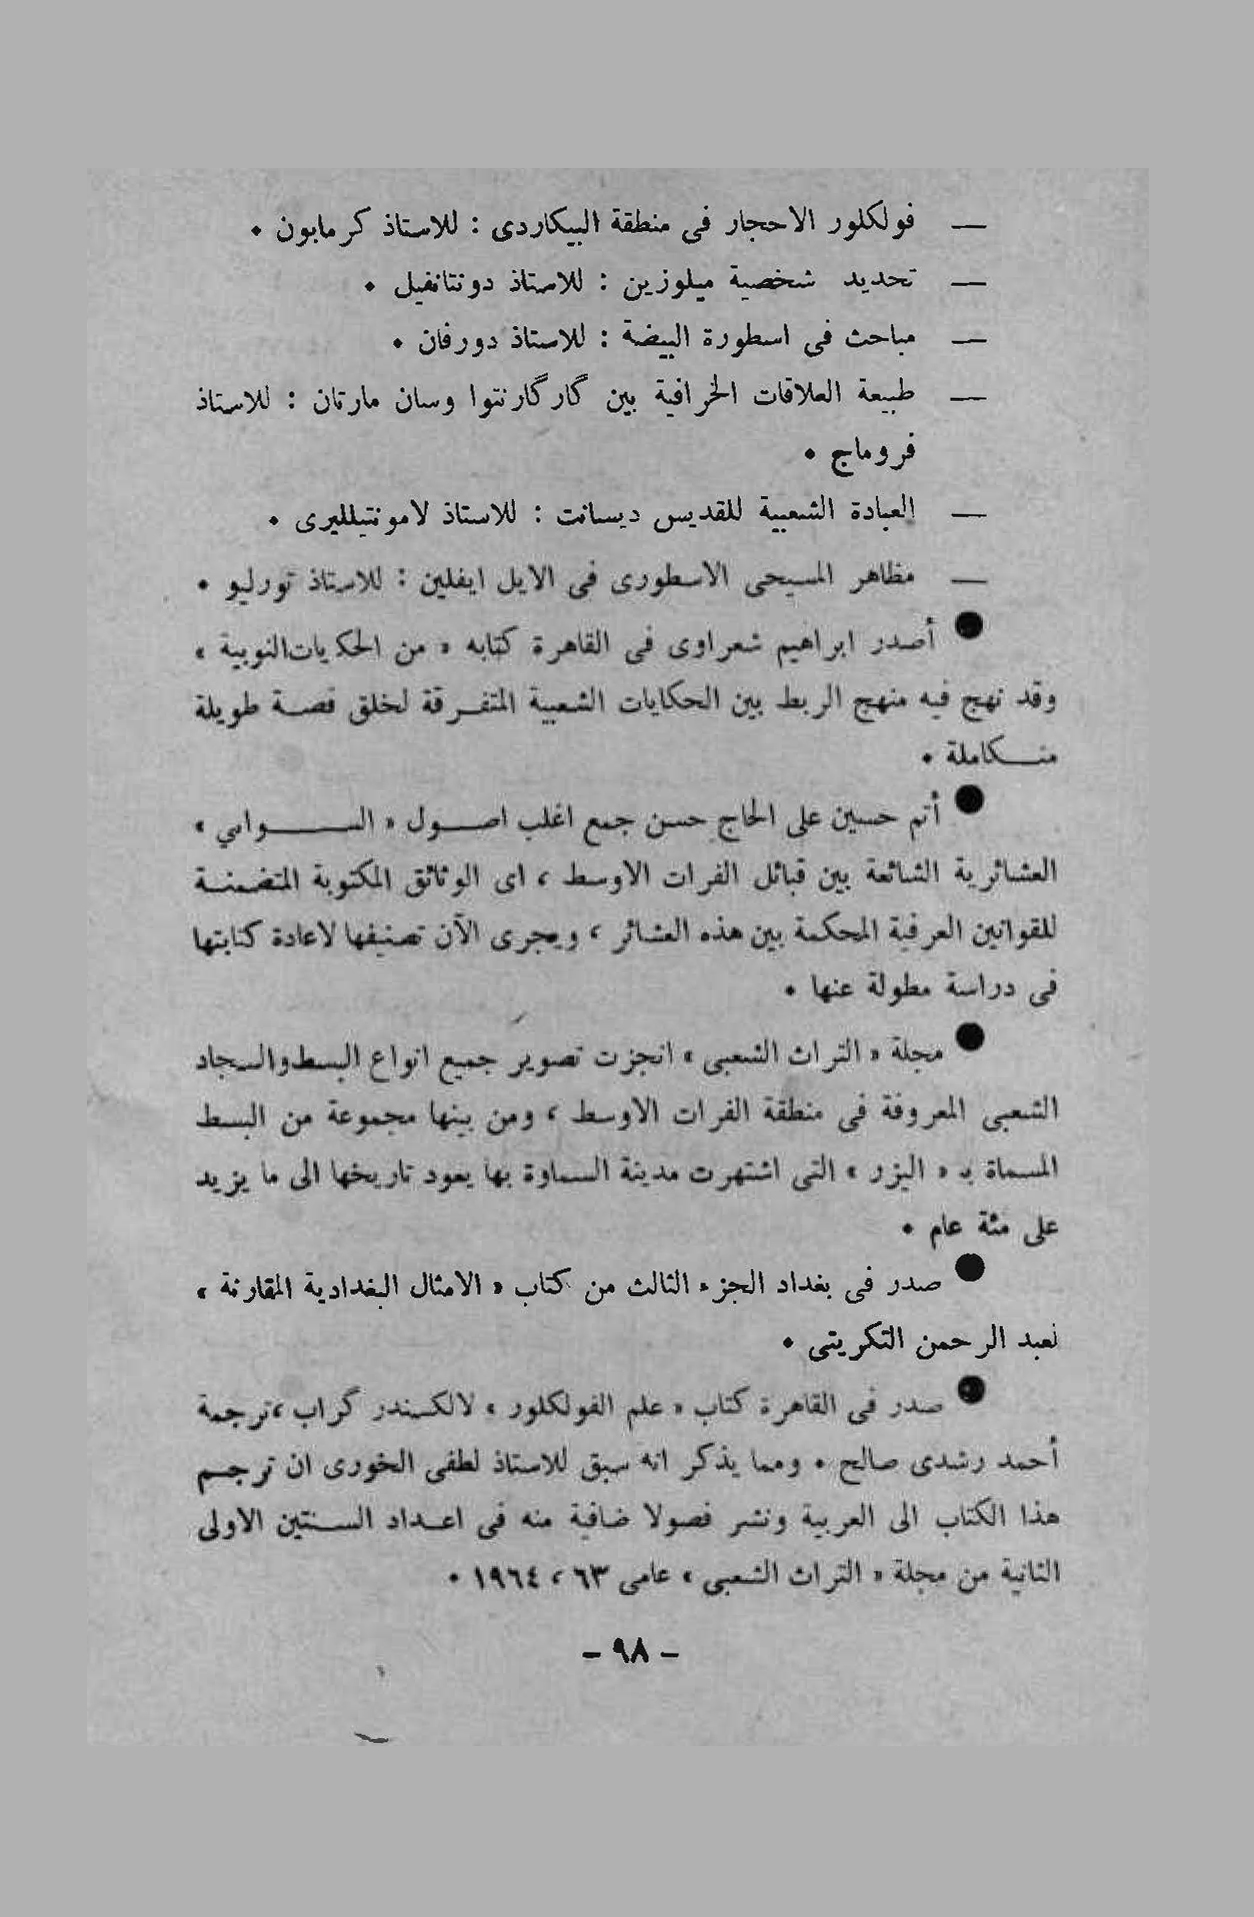 — فولكلور الاحجار فى منطقة البيكاردى : للاستاذ كرمابون .
— تحديد شخصية ميلوزين : للاستاذ دونتانفيل .
— مباحث فى اسطورة البيضة : للاستاذ دورفان .
— طبيعة العلاقات الخرافية بين گارگارنتوا وسان مارتان : للاستاذ
فروماج .
— العبادة الشعبية للقديس ديسانت : للاستاذ لامونتيلليرى .
— مظاهر المسيحى الاسطورى فى الايل ايفلين : للاستاذ تورليو .
● أصدر ابراهيم شعراوى فى القاهرة كتابه « من الحكايات النوبية »
وقد نهج فيه منهج الربط بين الحكايات الشعبية المتفرقة لخلق قصة طويلة
متكاملة .
● أتم حسين على الحاج حسن جمع اغلب اصول « السوانى »
العشائرية الشائعة بين قبائل الفرات الاوسط ، اى الوثائق المكتوبة المتضمنة
للقوانين العرفية المحكمة بين هذه العشائر ، ويجرى الآن تصنيفها لاعادة كتابتها
فى دراسة مطولة عنها .
● مجلة « التراث الشعبى » انجزت تصوير جميع انواع البسط والسجاد
الشعبى المعروفة فى منطقة الفرات الاوسط ، ومن بينها مجموعة من البسط
المسماة بـ « اليزر » التى اشتهرت مدينة السماوة بها يعود تاريخها الى ما يزيد
على مئة عام .
● صدر فى بغداد الجزء الثالث من كتاب « الامثال البغدادية المقارنة »
لعبد الرحمن التكريتى .
● صدر فى القاهرة كتاب « علم الفولكلور » لالكسندر گراب ،ترجمة
أحمد رشدى صالح . ومما يذكر انه سبق للاستاذ لطفى الخورى ان ترجم
هذا الكتاب الى العربية ونشر فصولا ضافية منه فى اعداد السنتين الاولى
الثانية من مجلة « التراث الشعبى » عامى ٦٣ ، ١٩٦٤ .
- ٩٨ -